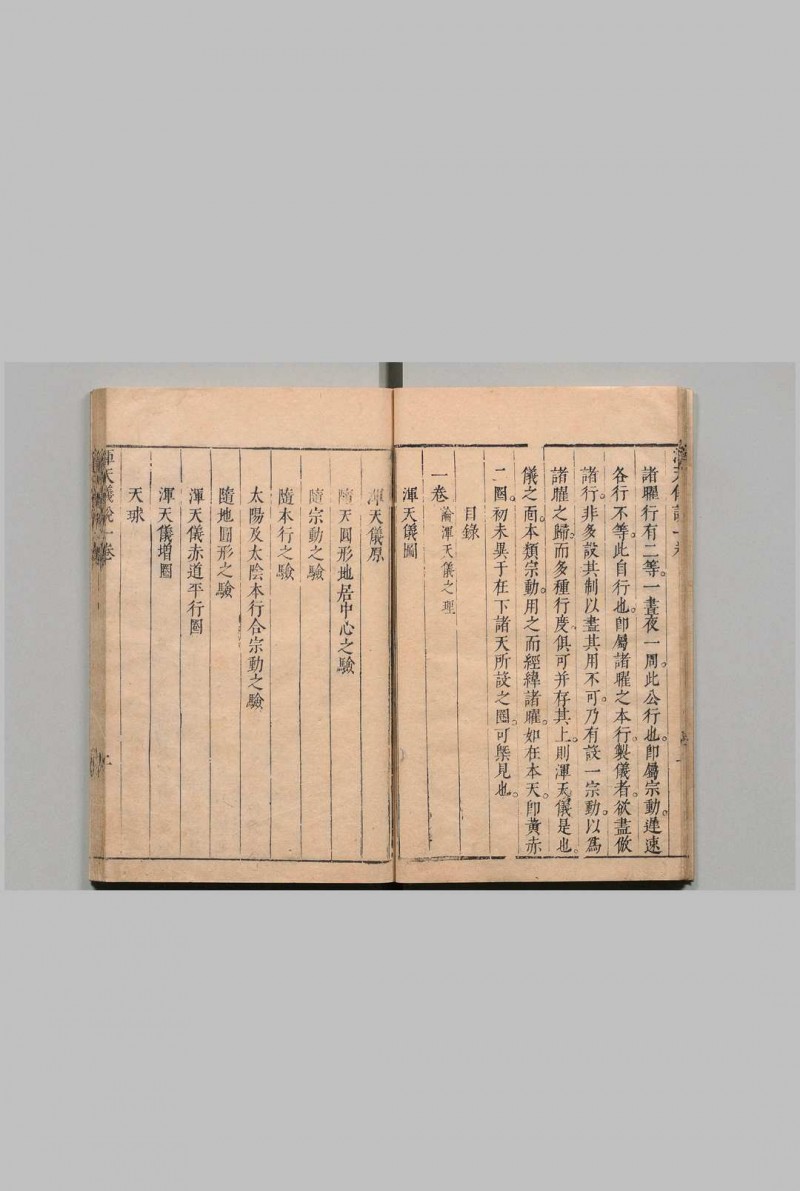 諸曜行有二等。一晝夜一周。此公行也。卽屬宗動。遲速
各行不等。此自行也。卽屬諸曜之本行。製儀者。欲盡倣
諸行。非多設其制以盡其用不可。乃有設一宗動。以爲
諸曜之歸。而多種行度。俱可并存其上。則渾天儀是也。
儀之面。本類宗動。用之而經緯諸曜。如在本天。卽黃赤
二圈。初未異于在下諸天所設之圈。可槩見也。
目錄
一卷 論渾天儀之理
渾天儀圖
渾天儀原
隨天圓形地居中心之驗
隨宗動之驗
隨本行之驗
太陽及太陰本行合宗動之驗
隨地圓形之驗
渾天儀赤道平行圈
渾天儀增圈
天球
渾天儀說一卷